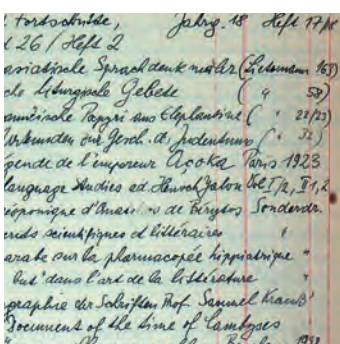 Fortschritte, Jahrg. 18 Heft 17/18
26 / Heft 2
asiatische Sprachdenkmäler (Lietzmann 163)
Liturgische Gebete ( " 58)
aramäische Papyri aus Elephantine ( " 22/23)
Urkunden zur Gesch. d. Judentums ( " 32)
gende de l'empereur Açoka Paris 1923
language studies ed. Henoch Yalon Vol I/2, II 1,2
d'Anast de Berytos Sonderdr.
scientifiques et littéraires "
arabe sur la pharmacopée hippiatrique "
but' dans l'art de la littérature "
graphie der Schriften Prof. Samuel Krauß'
Document of the time of Cambyses
1938